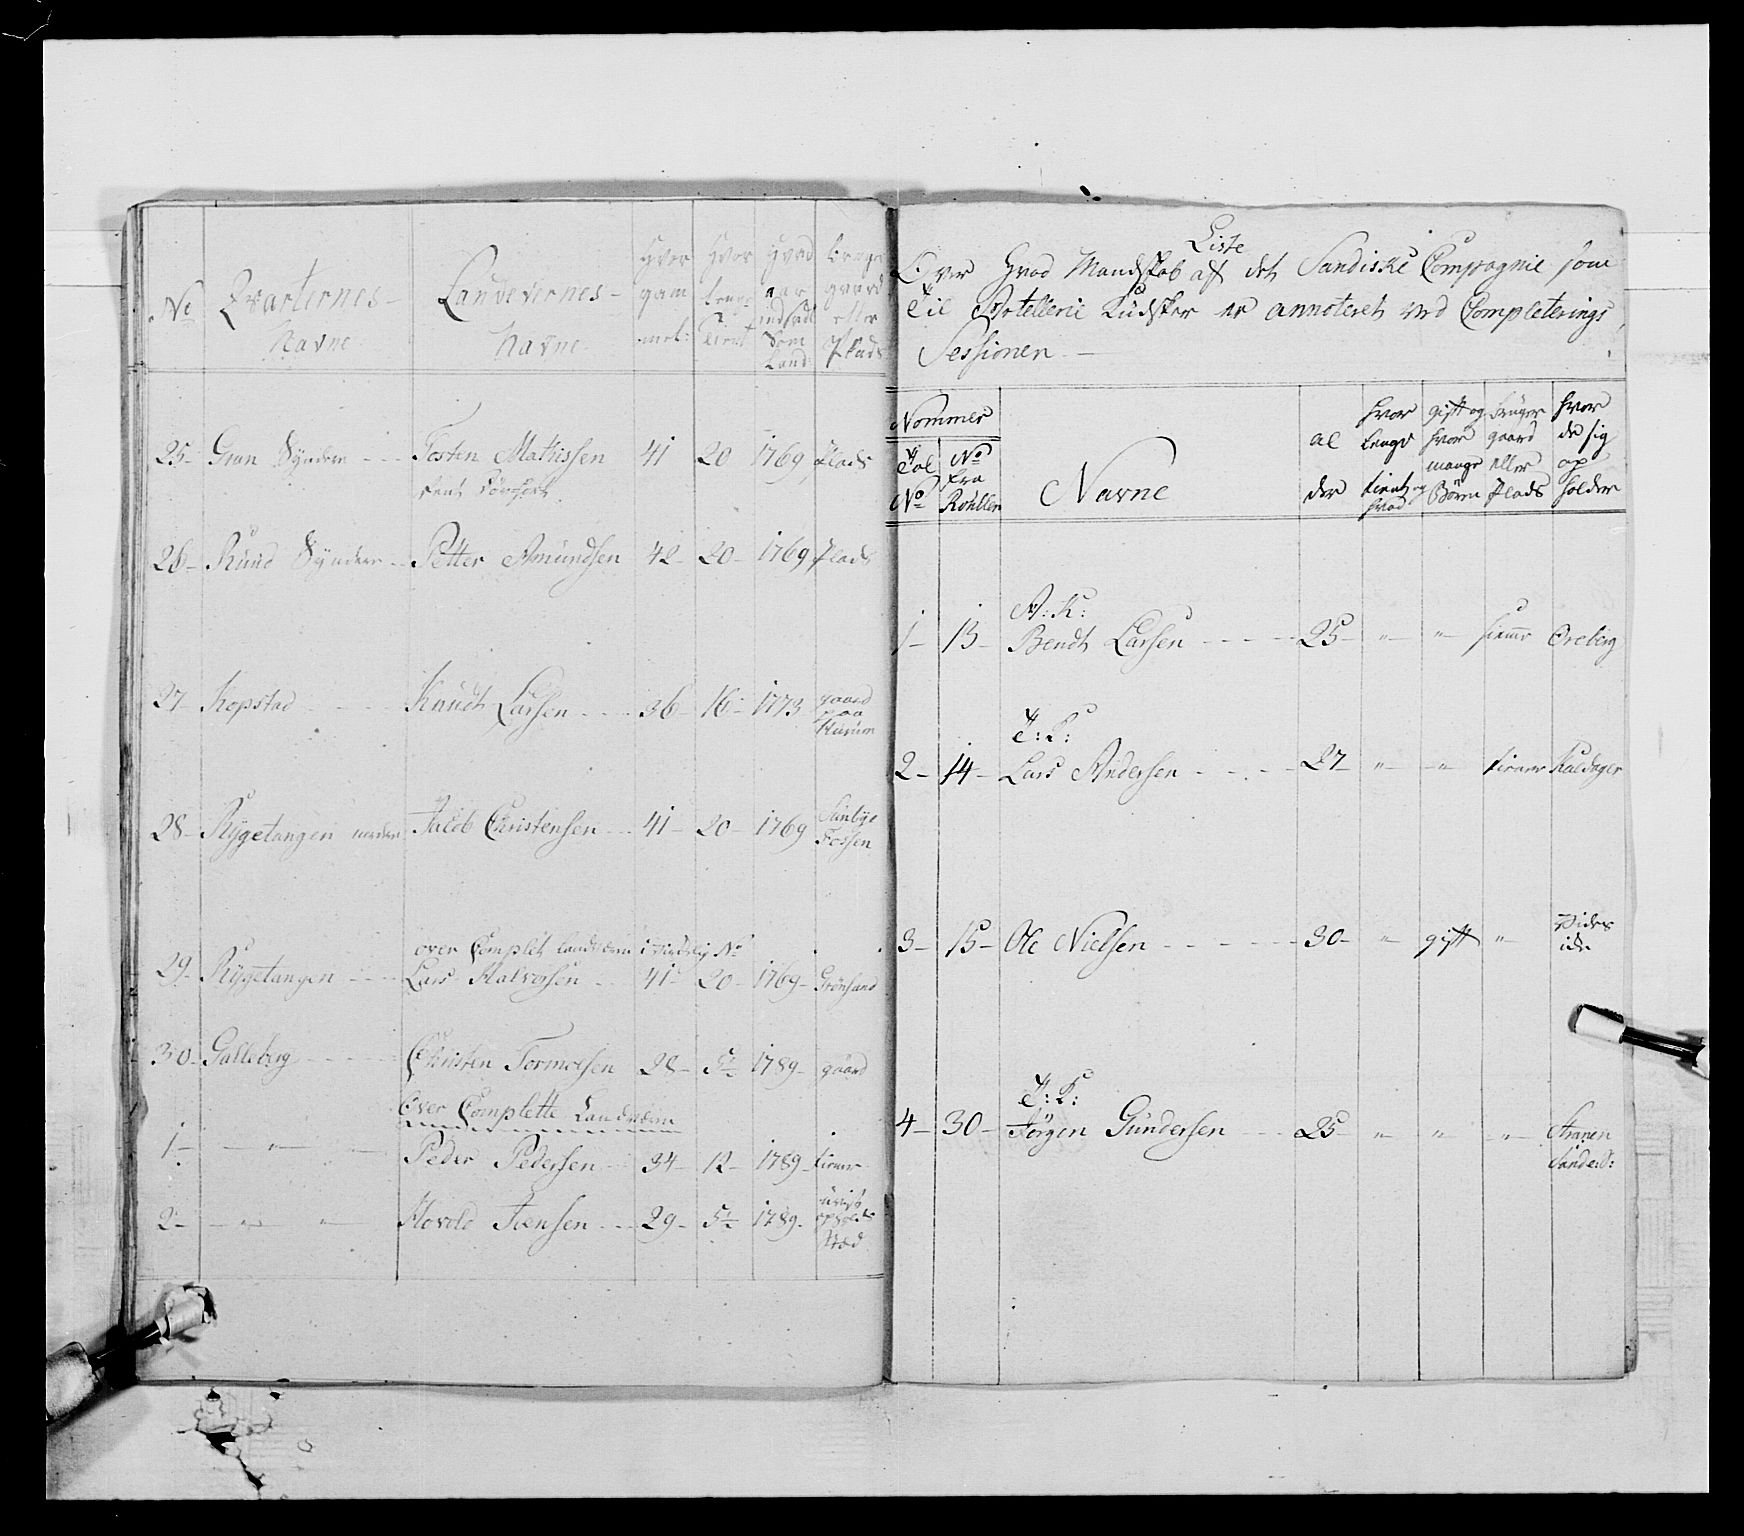 No Qvarternes Navne Landevernes Navne Hvor gam mel: Hvor lenge tient Hvad aar indsadt Som Land: bruge gaard eller Plads
25 Gran Syndere Tosten Mathissen 41 20 1769 Plads
26 Rund Syndere Petter Amundsen 42 20 1769 Plads
27 Kopstad Knudt Larsen 36 16 1773 gaard paa
28 Rygetangen nordre Jacob Christensen 41 20 1769 Sunbye Fossen
over Complet Landværn No
29 Rygetangen Lars Halvorsen 41 20 1769 Grønsand
30 Galleberg Christen Tormoesen 28 5½ 1789 gaard
Over Complette Landværn
1 " Peder Pedersen 34 12 1789 tiener
2 " " Hovold Jensen 29 5½ 1789 opholds
Liste
Over Hvad Mandskab aff det Sandiske Compagnie som
Til Artellerie Kudsker er annoteret ved Completerings
Sessionen
Nommer
Tal No No fra Rullen Navne al der hvor lenge tient og hvad gift og hvor mange Børn bruger gaard eller Plads hvor de sig op holder
A: K:
1 13 Bendt Larsen 25 " " hiemme Oreberg
T: K:
2 14 Lars Andersen 27 " " tiener
3 15 Ole Nielsen 30 " gift "
T: K:
4 30 Jørgen Gundersen 25 " " " Stranen
Sande S: